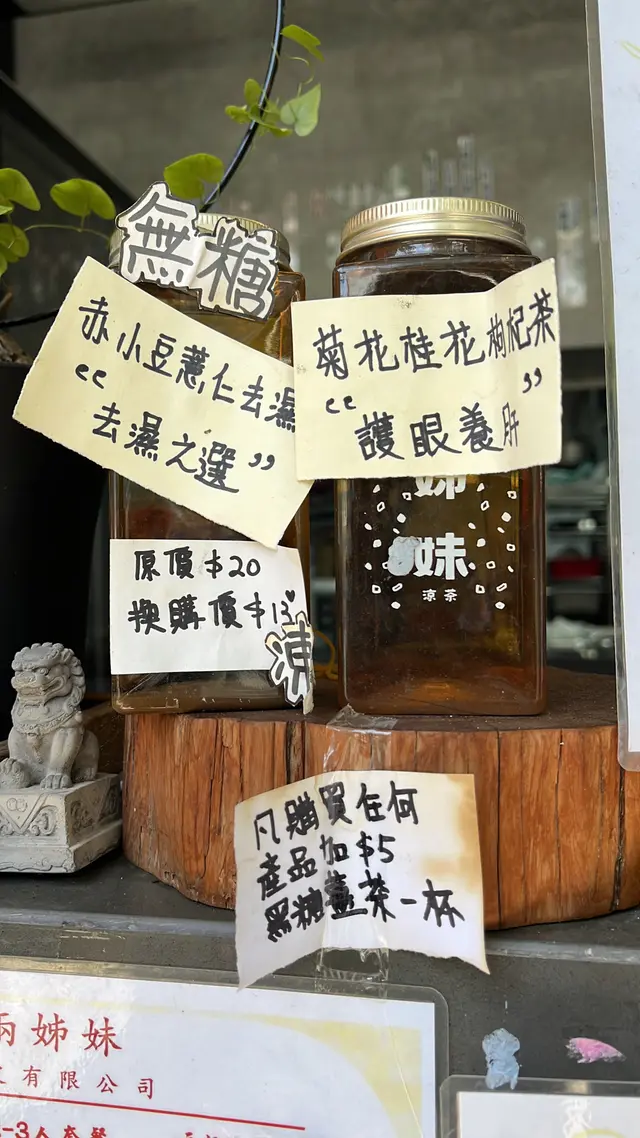 無糖
赤小豆薏仁去濕
“去濕之選”
菊花桂花枸杞茶
“護眼養肝”
姊
妹
涼茶
原價$20
換購價$13
凍
凡購買任何
產品加$5
黑糖薑茶一杯
兩姊妹
有限公司
-3人套餐